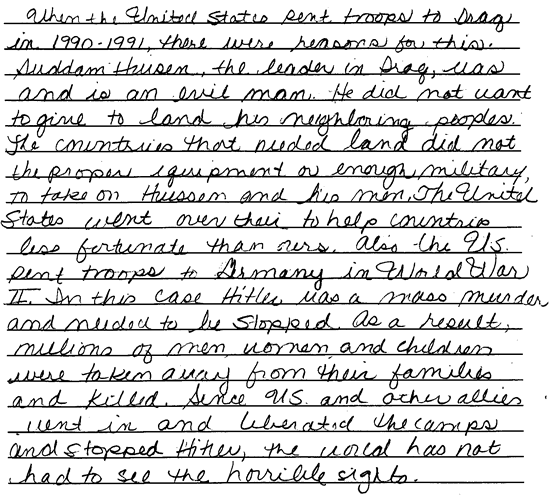 When the United States sent troops to Iraq
in 1990-1991, there were reasons for this.
Suddam Hussen, the leader in Iraq, was
and is an evil man. He did not want
to give to land his neighboring peoples.
The countries that needed land did not
the proper equipment or enough military,
to take on Hussen and his men. The United
States went over their to help countries
less fortunate than ours. Also the U.S.
sent troops to Germany in World War
II. In this case Hitler was a mass murder
and needed to be stopped. As a result,
millions of men, women, and children
were taken away from their families
and killed. Since U.S. and other allies
went in and liberated the camps
and stopped Hitler, the world has not
had to see the horrible sights.